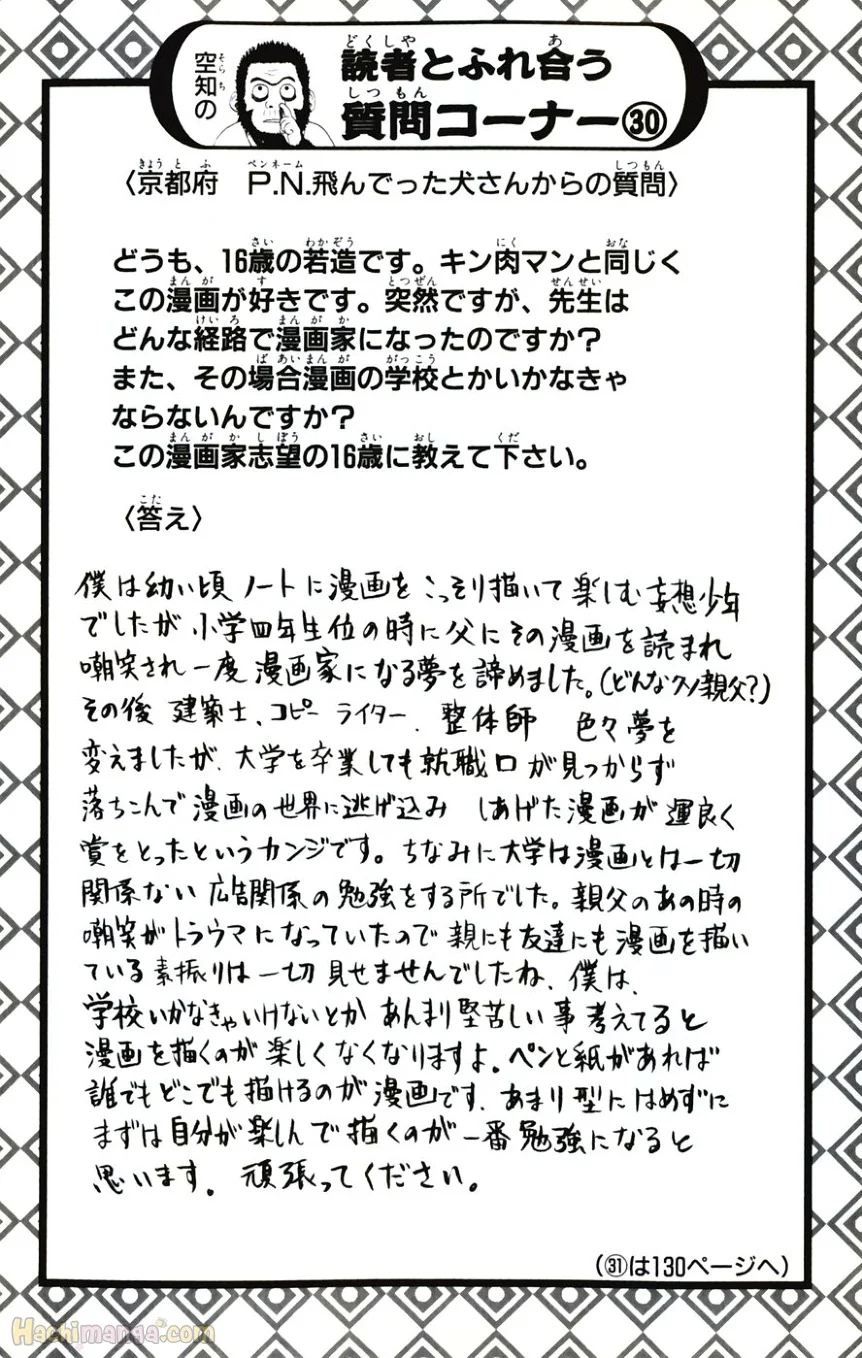 空知の
読者とふれ合う
質問コーナー㉚
〈京都府　P.N.飛んでった犬さんからの質問〉
どうも、16歳の若造です。キン肉マンと同じく
この漫画が好きです。突然ですが、先生は
どんな経路で漫画家になったのですか？
また、その場合漫画の学校とかいかなきゃ
ならないんですか？
この漫画家志望の16歳に教えて下さい。
〈答え〉
僕は幼い頃 ノートに漫画を こっそり描いて 楽しむ 妄想少年
でしたが 小学四年生位の時に父にその漫画を読まれ
嘲笑され 一度 漫画家になる夢を諦めました。(どんなクソ親父？)
その後 建築士、コピーライター、整体師 色々夢を
変えましたが、大学を卒業しても就職口が見つからず
落ちこんで漫画の世界に逃げ込み しあげた漫画が運良く
賞をとったというカンジです。ちなみに大学は漫画とは一切
関係ない 広告関係の勉強をする所でした。親父のあの時の
嘲笑がトラウマになっていたので 親にも友達にも漫画を描い
ている素振りは一切見せませんでしたね、僕は、
学校いかなきゃいけないとか あんまり堅苦しい事考えてると
漫画を描くのが楽しくなくなりますよ。ペンと紙があれば
誰でもどこでも描けるのが漫画です、あまり型にはめずに
まずは自分が楽しんで描くのが一番勉強になると
思います。頑張ってください。
（㉛は130ページへ）
Hachimanga.com